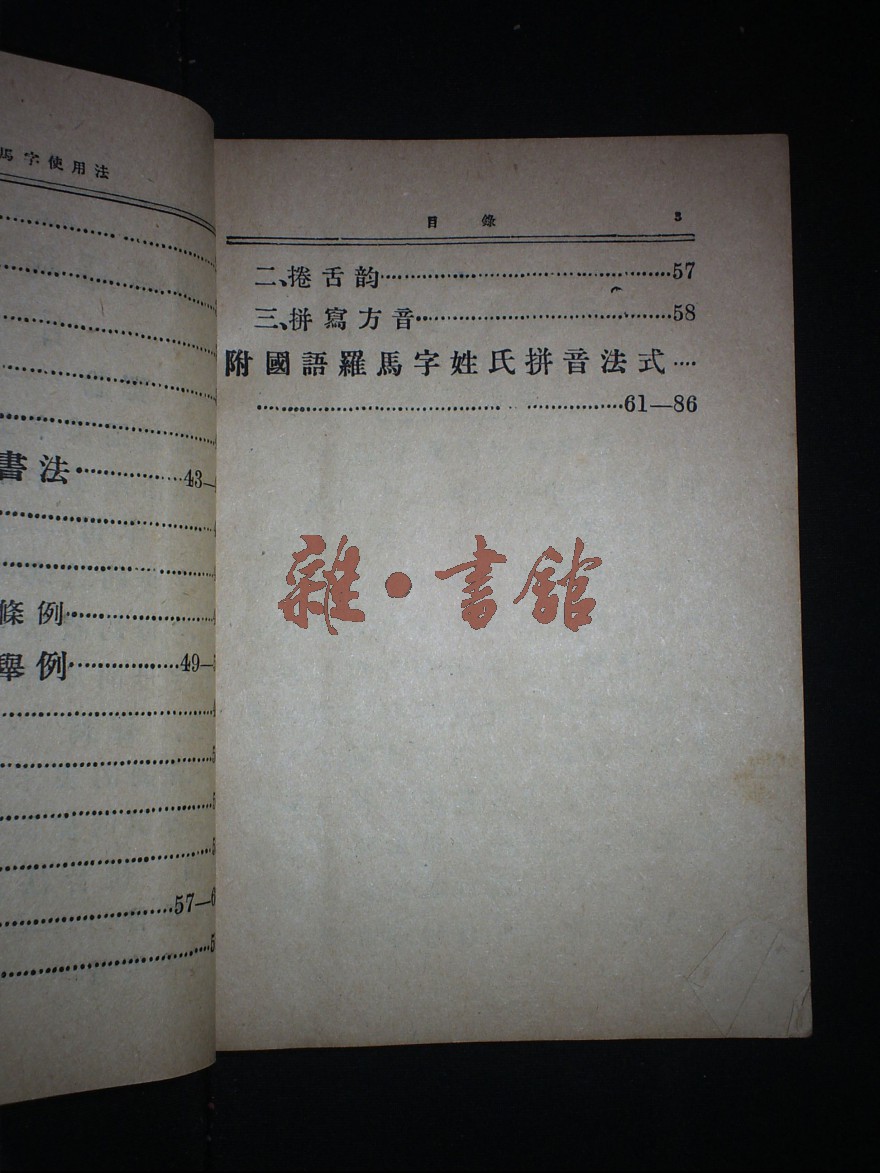 馬字使用法
書法··············43—
條例··············
舉例··············49—
57—6
目錄 3
二、捲舌韵··············57
三、拼寫方音··············58
附國語羅馬字姓氏拼音法式····
··············61—86
雜·書館